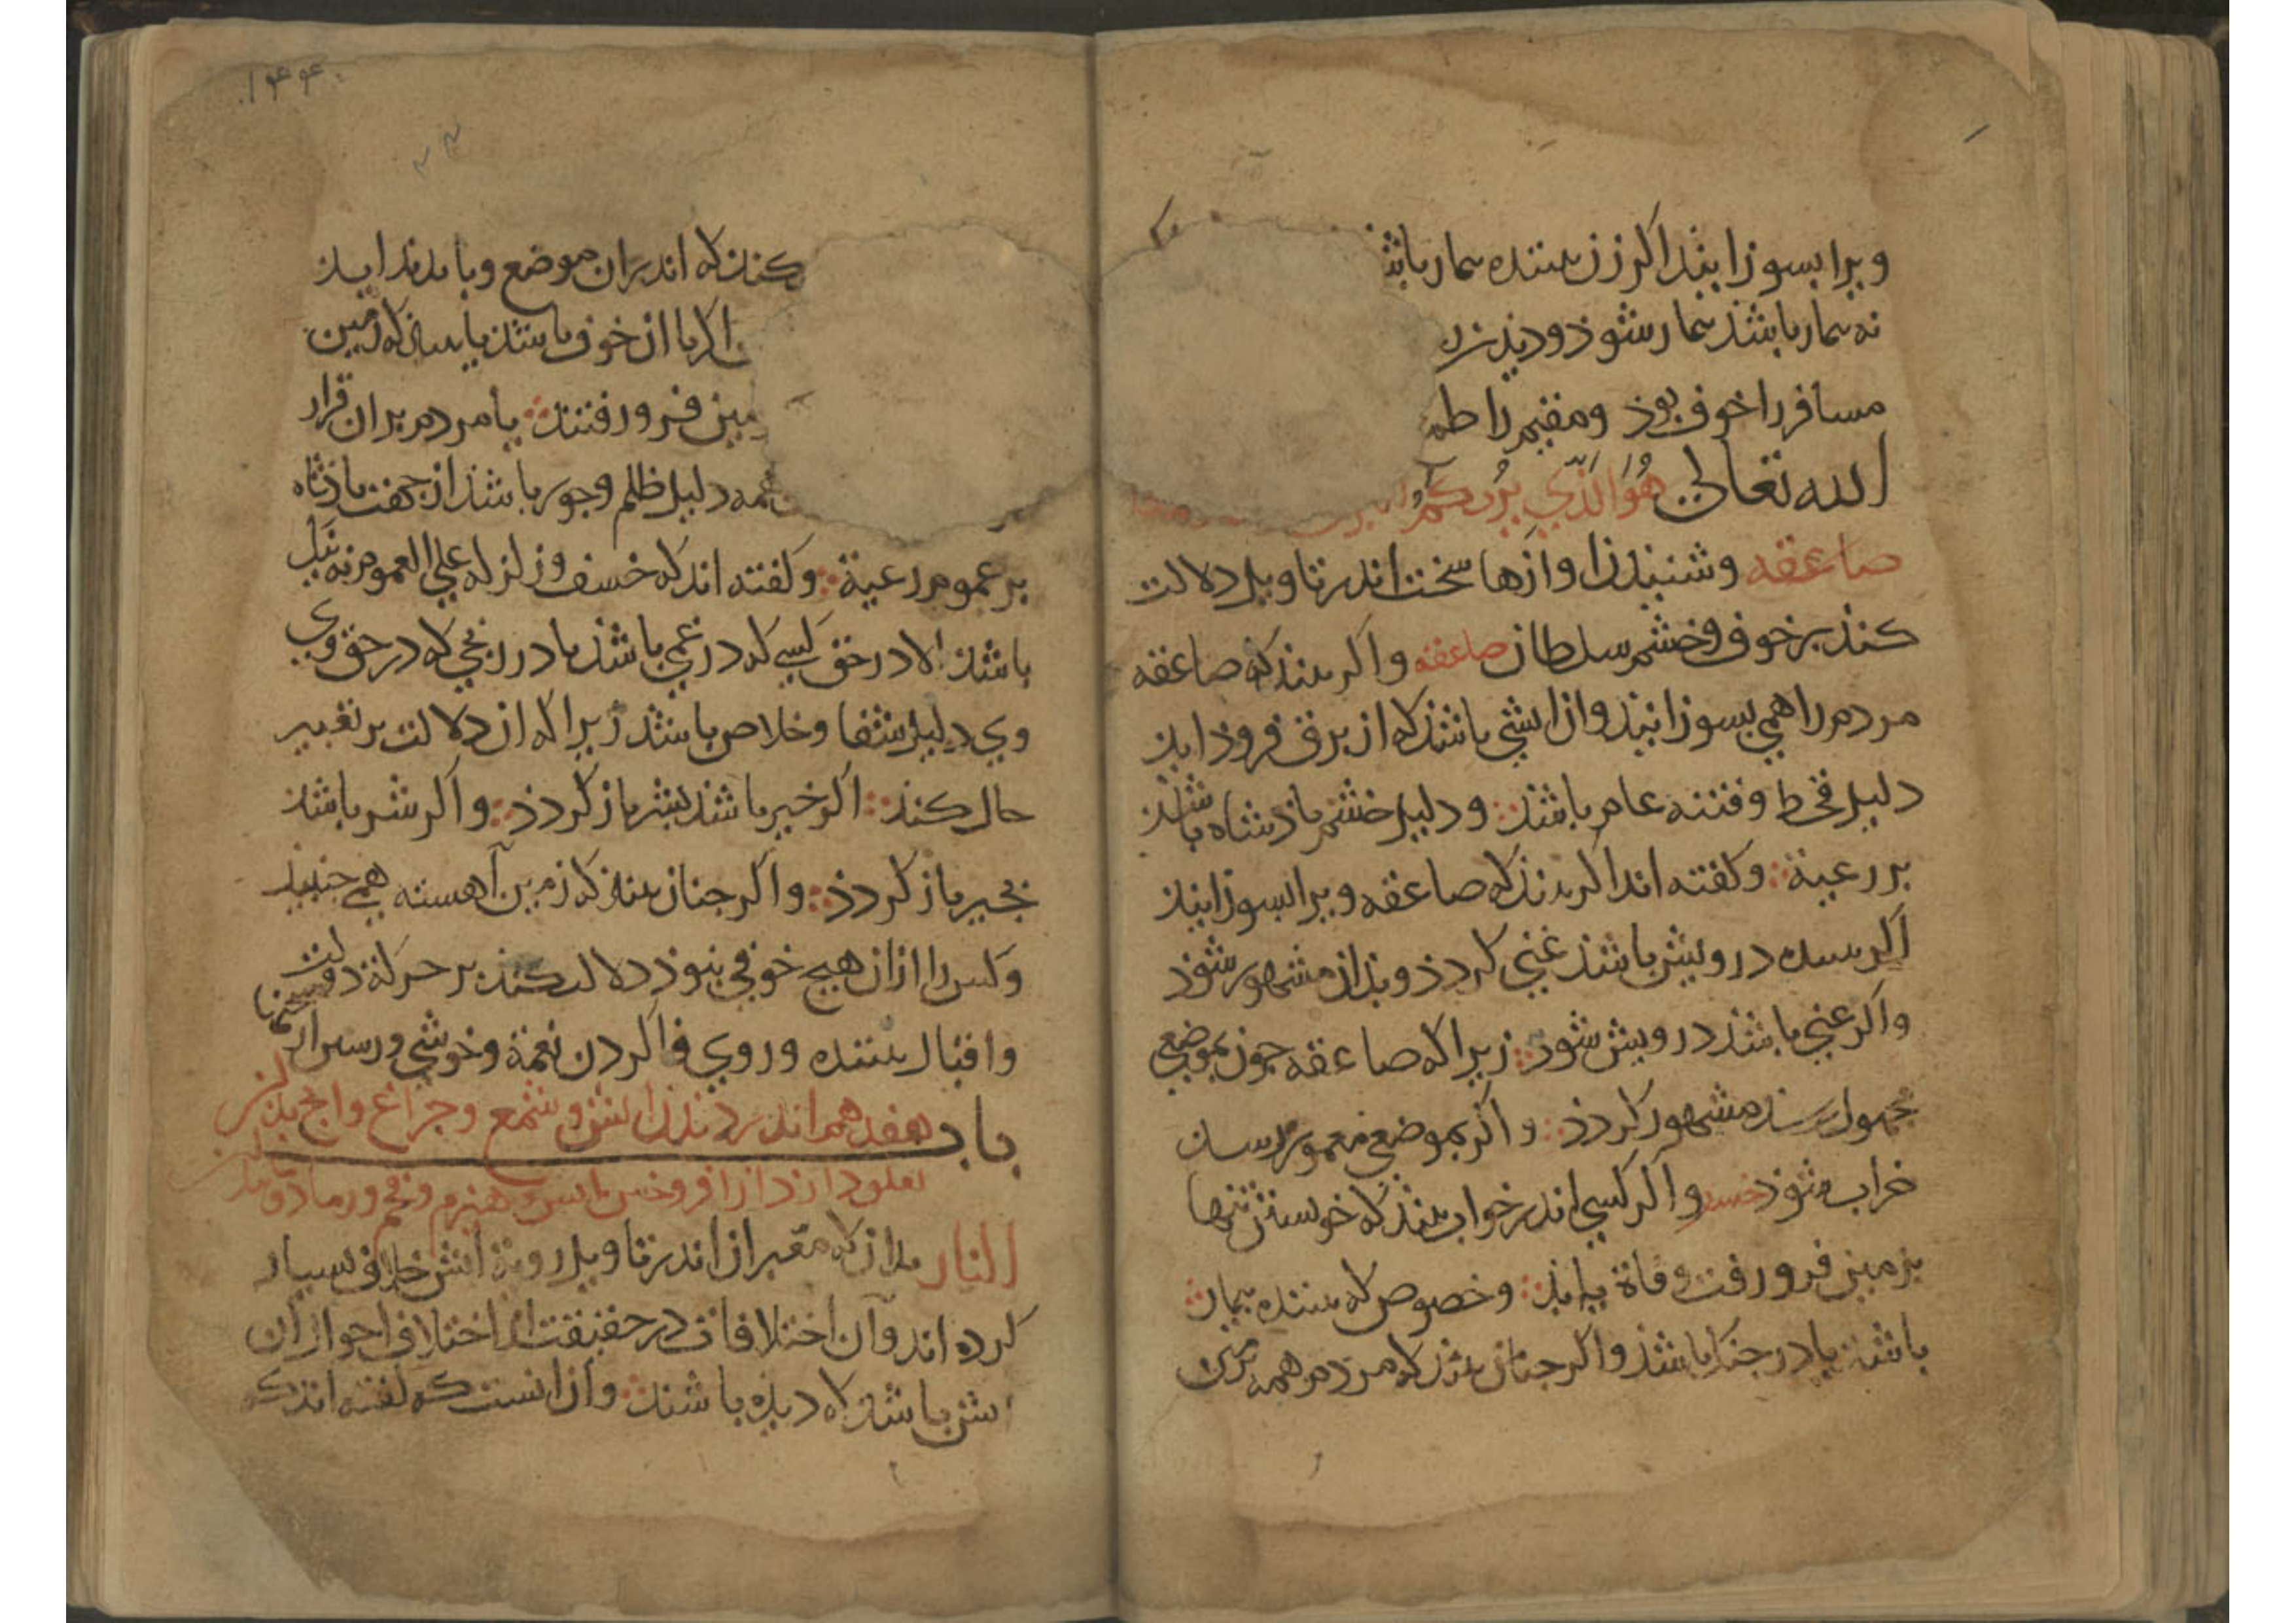 ویرا بسوزانند اکر زن بیننده بیمار باشد
نه بیمار باشد بیمار شوذ و دیدن
مسافر را خوف بوذ ومقیم را طمع
الله تعالی هُوَ الَّذِي يُرِيكُمُ
صاعقه وشنیدن اوازها سخت اندر تاویل دلالت
کند بر خوف وخشم سلطان صاعقه واکر بیند که صاعقه
مردم را همی بسوزانید وان اتشی باشد که از برق فروذ اید
دلیل قحط و فتنه عام باشد ودلیل خشم باذشاه باشد
بر رعیة وکفته اند اکر بیند که صاعقه ویرا بسوزانید
اکر بیننده درویش باشد غنی کردذ وبذان مشهور شوذ
واکر غنی باشد درویش شوذ زیراکه صاعقه جون بموضعی
مجهول رسد مشهور کردذ واکر بموضعی معمور رسد
خراب شوذ خسف واکر کسی اندر خواب بیند که خویشتن تنها
بزمین فرو رفت وفاة یابد وخصوص که بیننده بیمار
باشد یا در جنک باشد واکر جنان بیند که مردم همه
کند که اندران موضع وبا بدید اید
اکر با ان خوف باشد یا که زمین
زمین فرو رفتند یا مردم بران قرار
همه دلیل ظلم وجور باشد از جهت باذشاه
بر عموم رعیة وکفته اند که خسف وزلزله علی العموم نه نیک
باشد الا در حق کسی که در غمی باشد یا در رنجی که در حق وی
وی دلیل شفا وخلاص باشد زیرا که ان دلالت بر تغییر
حال کند اکر خیر باشد بشر باز کردذ واکر شر باشد
بخیر باز کردذ واکر جنان بیند که زمین آهسته همی جنبید
وکس را ازان هیج خوفی نبوذ دلالت کند بر حرکة دولت
واقبال بیننده وروی فا کردن نعمة وخوشی ورسیدن
باب هفدهم اندر دیدن اتش وشمع وجراغ وانج بدین
تعلق دارد از افروختن اتش وهیزم وفحم ورماد
النار بدان که معبران اندر تاویل رویة اتش خلاف بسیار
کرده اند وآن اختلافات در حقیقت از اختلاف احوال ان
اتش باشد که دیده باشند وازانست که کفته اند که